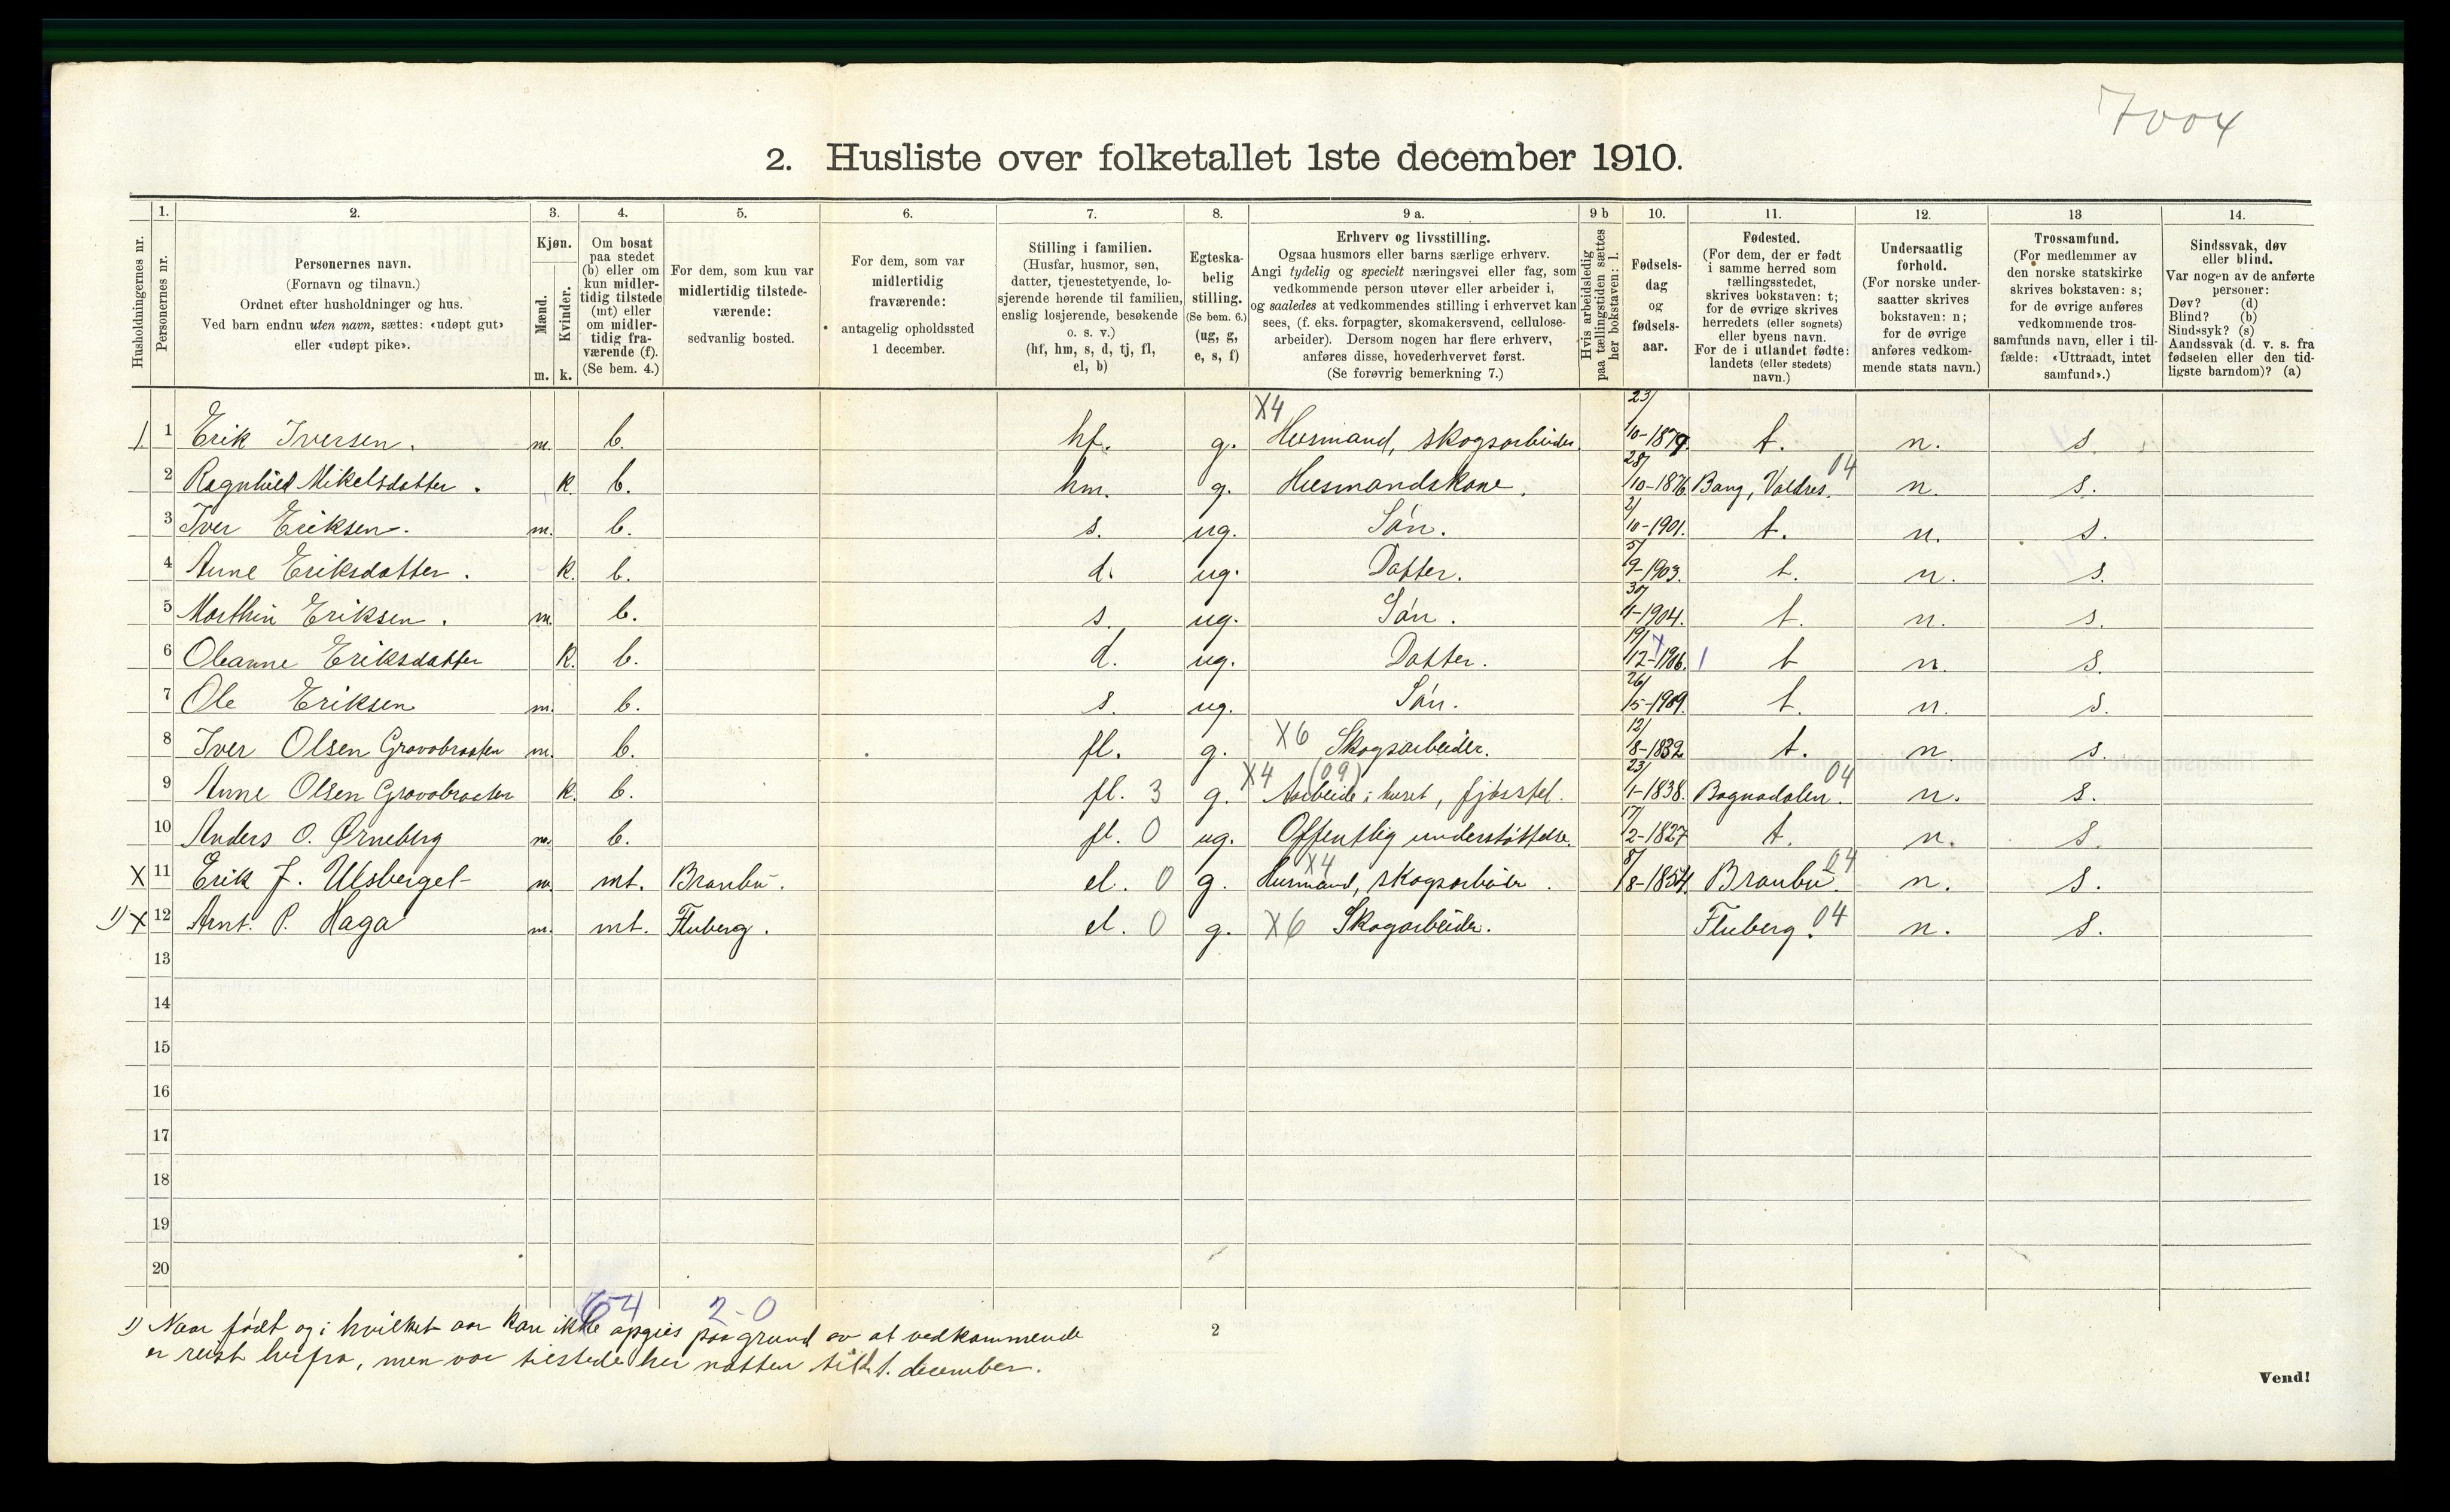 7004
2. Husliste over folketallet 1ste december 1910.
Husholdningernes nr.
1. Personernes nr.
2. Personernes navn.
(Fornavn og tilnavn.)
Ordnet efter husholdninger og hus.
Ved barn endnu uten navn, sættes: «udøpt gut»
eller «udøpt pike».
3. Kjøn.
Mænd. m.
Kvinder. k.
4. Om bosat
paa stedet
(b) eller om
kun midler-
tidig tilstede
(mt) eller
om midler-
tidig fra-
værende (f).
(Se bem. 4.)
5. For dem, som kun var
midlertidig tilstede-
værende:
sedvanlig bosted.
6. For dem, som var
midlertidig
fraværende:
antagelig opholdssted
1 december.
7. Stilling i familien.
(Husfar, husmor, søn,
datter, tjenestetyende, lo-
sjerende hørende til familien,
enslig losjerende, besøkende
o. s. v.)
(hf, hm, s, d, tj, fl,
el, b)
8. Egteska-
belig
stilling.
(Se bem. 6.)
(ug, g,
e, s, f)
9 a. Erhverv og livsstilling.
Ogsaa husmors eller barns særlige erhverv.
Angi tydelig og specielt næringsvei eller fag, som
vedkommende person utøver eller arbeider i,
og saaledes at vedkommendes stilling i erhvervet kan
sees, (f. eks. forpagter, skomakersvend, cellulose-
arbeider). Dersom nogen har flere erhverv,
anføres disse, hovederhvervet først.
(Se forøvrig bemerkning 7.)
9 b Hvis arbeidsledig
paa tællingstiden sættes
her bokstaven: l.
10. Fødsels-
dag
og
fødsels-
aar.
11. Fødested.
(For dem, der er født
i samme herred som
tællingsstedet,
skrives bokstaven: t;
for de øvrige skrives
herredets (eller sognets)
eller byens navn.
For de i utlandet fødte:
landets (eller stedets)
navn.)
12. Undersaatlig
forhold.
(For norske under-
saatter skrives
bokstaven: n;
for de øvrige
anføres vedkom-
mende stats navn.)
13 Trossamfund.
(For medlemmer av
den norske statskirke
skrives bokstaven: s;
for de øvrige anføres
vedkommende tros-
samfunds navn, eller i til-
fælde: «Uttraadt, intet
samfund».)
14. Sindssvak, døv
eller blind.
Var nogen av de anførte
personer:
Døv? (d)
Blind? (b)
Sindssyk? (s)
Aandssvak (d. v. s. fra
fødselen eller den tid-
ligste barndom)? (a)
1. 1 Erik Iversen. m. b. hf. g. X4 Husmand, skogsarbeider. 23/10-1879. t. n. s.
2 Ragnhild Mikelsdatter. k. b. hm. g. Husmandskone. 28/10-1876 Bang, Valdres. 04 n. s.
3 Iver Eriksen. m. b. s. ug. Søn. 2/10-1901. t. n. s.
4 Anne Eriksdatter. k. b. d. ug. Datter. 5/9-1903. t. n. s.
5 Marthin Eriksen. m. b. s. ug. Søn. 30/ -1904. t. n. s.
6 Oleanne Eriksdatter k. b. d. ug. Datter. 19/12-1906. t n. s.
7 Ole Eriksen m. b. s. ug. Søn. 26/5-1909. t. n. s.
8 Iver Olsen Gravabraaten m. b. fl. g. X6 Skogsarbeider. 12/8-1832 t. n s.
9 Anne Olsen Gravabraaten k. b. fl. 3 g. X4 (09) Arbeide i huset, fjøsstel. 23/1-1838. Bagnadalen. 04 n. s.
10 Anders O. Ørneberg m. b. fl. 0 ug. Offentlig understøttelse. 17/2-1827 t. n. s.
X 11 Erik J. Ulsberget m. mt. Branbu. el. 0 g. X4 Husmand, skogsarbeider. 8/8-1854. Branbu. 04 n. s.
1) X 12 Arnt. P. Haga m. mt. Fluberg. el. 0 g. X6 Skogarbeider. Fluberg. 04 n. s.
13
14
15
16
17
18
19
20
54 2-0
1) Naar født og i hvilket aar kan ikke opgies paa grund av at vedkommende
er reist herfra, men var tilstede her natten til 1. december.
2
Vend!